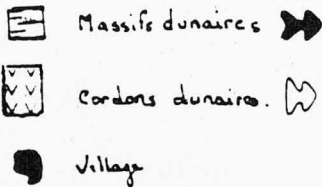 Massifs dunaires
Cordons dunaires.
Village